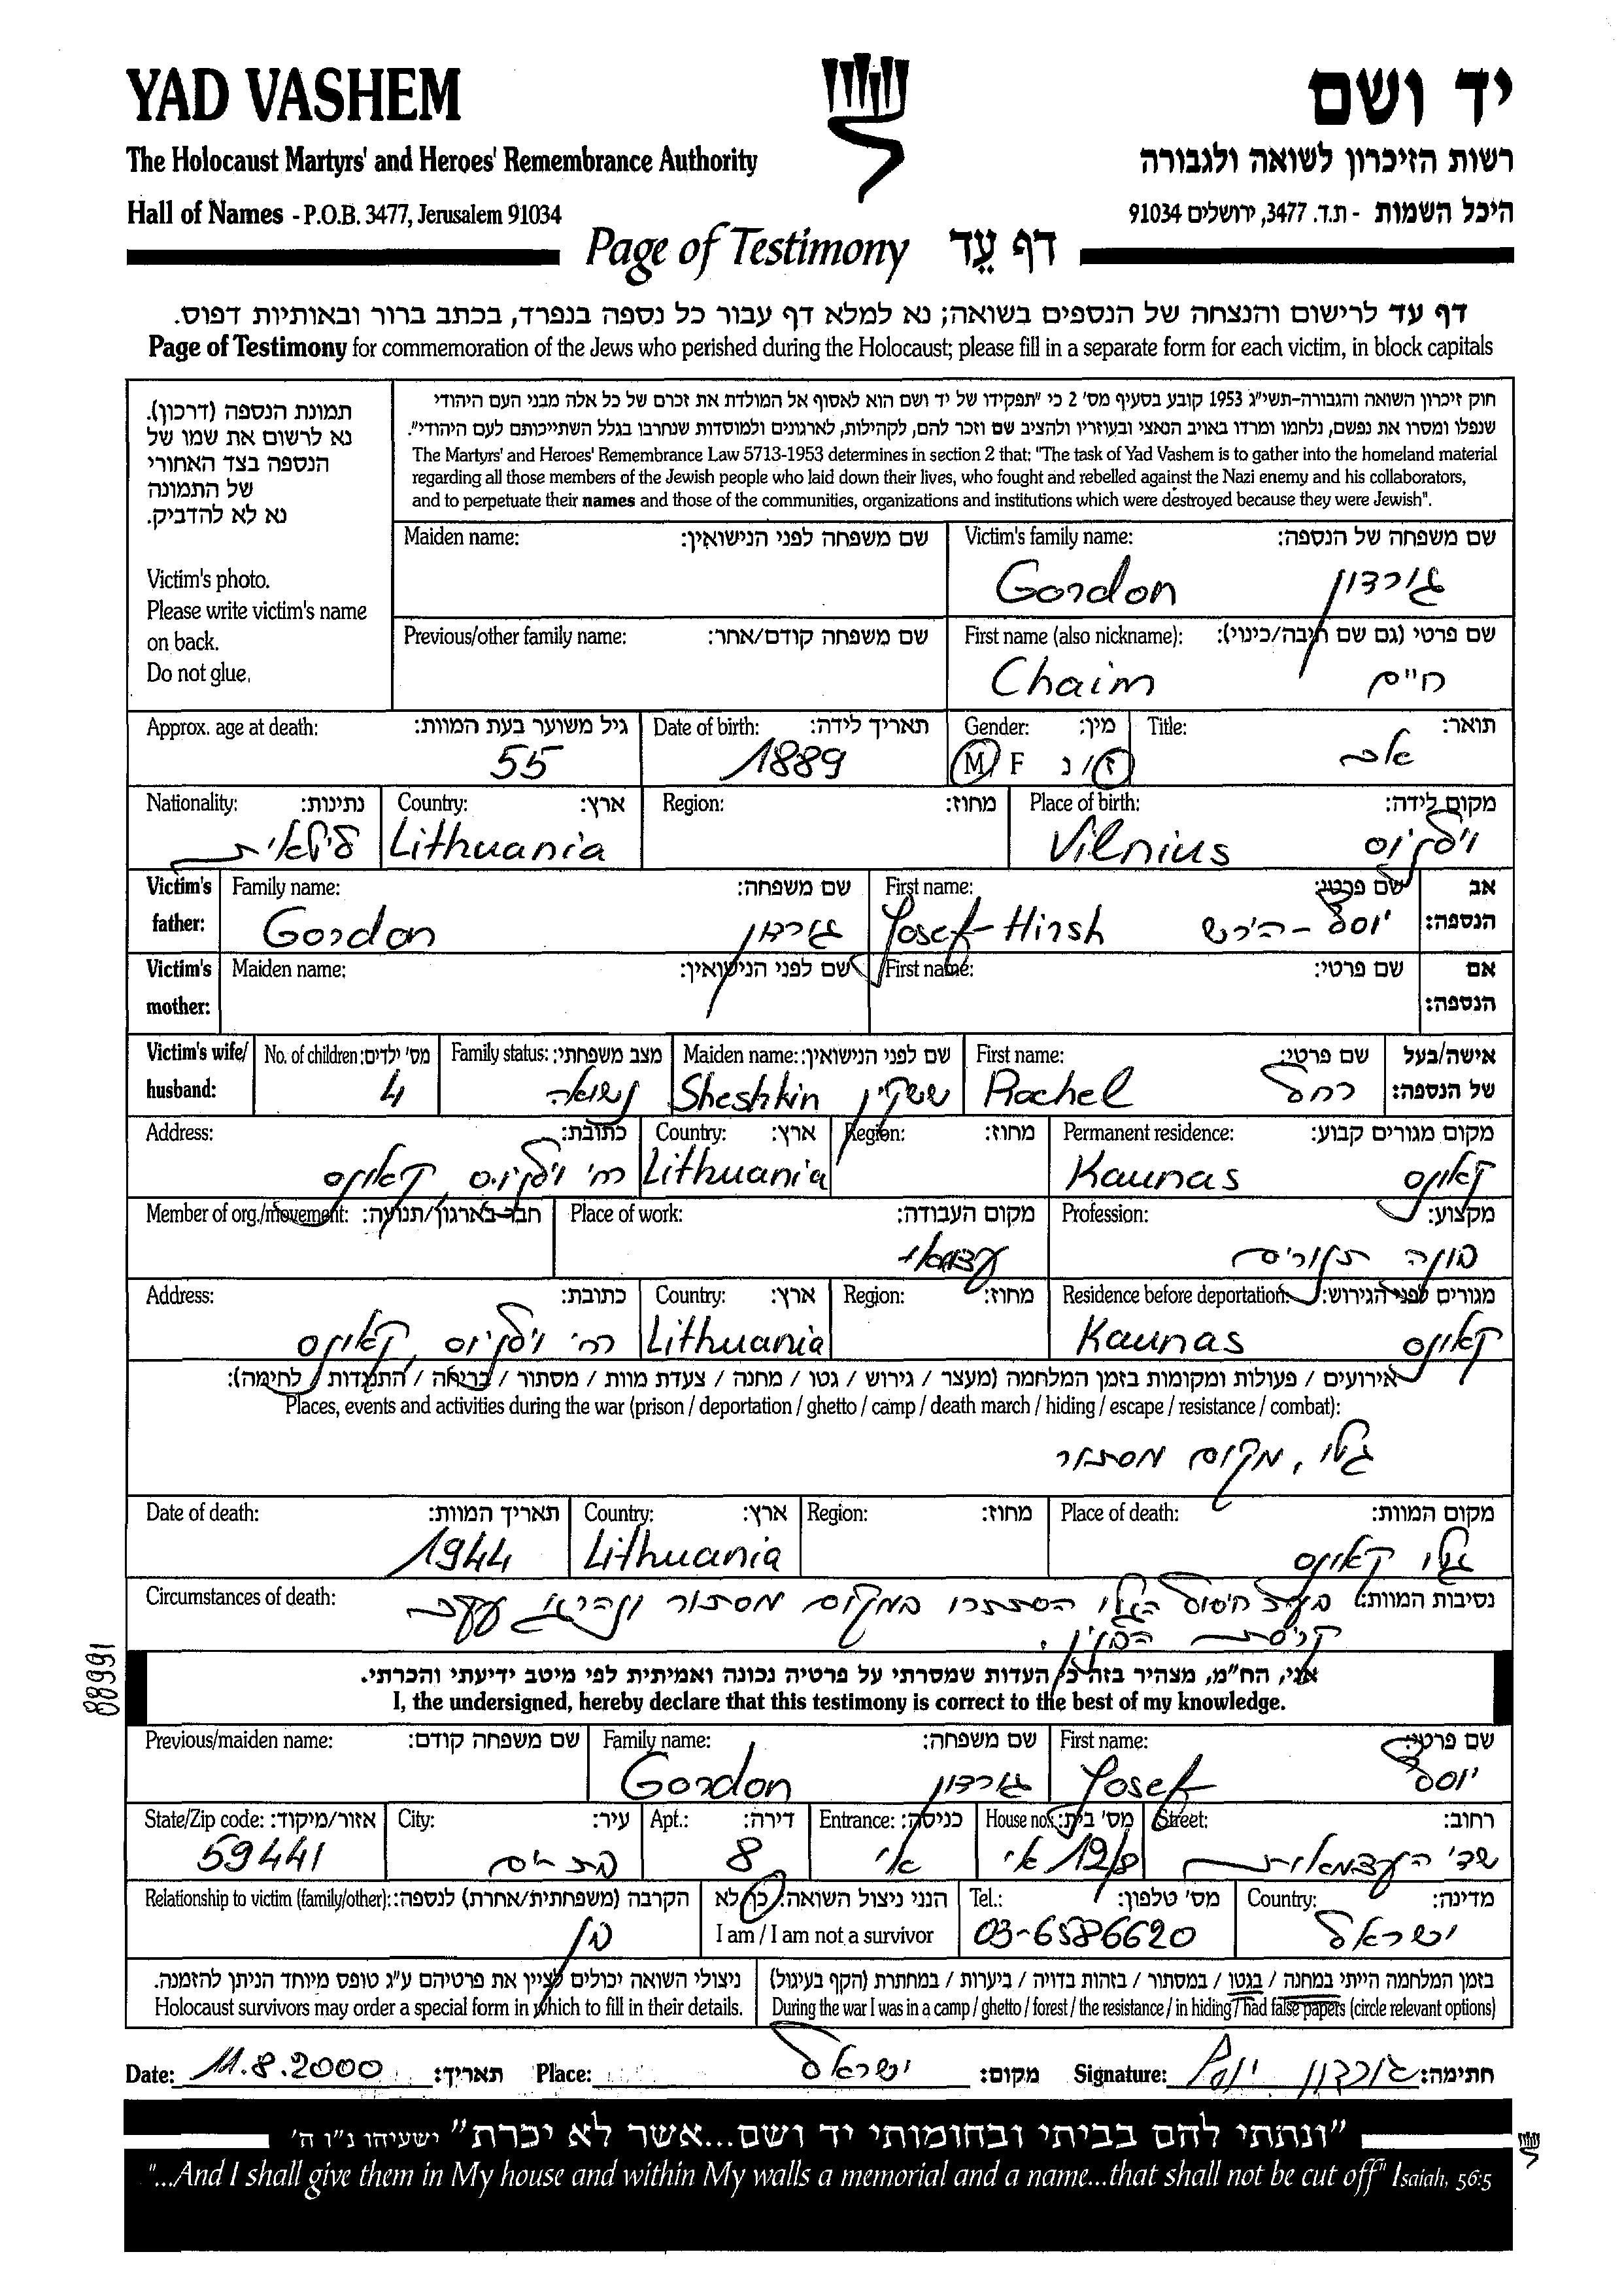 YAD VASHEM
יד ושם
The Holocaust Martyrs' and Heroes' Remembrance Authority
רשות הזיכרון לשואה ולגבורה
Hall of Names - P.O.B. 3477, Jerusalem 91034
היכל השמות - ת.ד. 3477, ירושלים 91034
Page of Testimony דף עֵד
דף עד לרישום והנצחה של הנספים בשואה; נא למלא דף עבור כל נספה בנפרד, בכתב ברור ובאותיות דפוס.
Page of Testimony for commemoration of the Jews who perished during the Holocaust; please fill in a separate form for each victim, in block capitals
תמונת הנספה (דרכון).
נא לרשום את שמו של
הנספה בצד האחורי
של התמונה
נא לא להדביק.
Victim's photo.
Please write victim's name
on back.
Do not glue.
חוק זיכרון השואה והגבורה-תשי"ג 1953 קובע בסעיף מס' 2 כי "תפקידו של יד ושם הוא לאסוף אל המולדת את זכרם של כל אלה מבני העם היהודי
שנפלו ומסרו את נפשם, נלחמו ומרדו באויב הנאצי ובעוזריו ולהציב שם וזכר להם, לקהילות, לארגונים ולמוסדות שנחרבו בגלל השתייכותם לעם היהודי".
The Martyrs' and Heroes' Remembrance Law 5713-1953 determines in section 2 that: "The task of Yad Vashem is to gather into the homeland material
regarding all those members of the Jewish people who laid down their lives, who fought and rebelled against the Nazi enemy and his collaborators,
and to perpetuate their names and those of the communities, organizations and institutions which were destroyed because they were Jewish".
Maiden name: שם משפחה לפני הנישואין:
Victim's family name: שם משפחה של הנספה:
Gordon גורדון
Previous/other family name: שם משפחה קודם/אחר:
First name (also nickname): שם פרטי (גם שם חיבה/כינוי):
Chaim חיים
Approx. age at death: גיל משוער בעת המוות:
55
Date of birth: תאריך לידה:
1889
Gender: מין:
M / F ז / נ
Title: תואר:
אב
Nationality: נתינות:
ליטאית
Country: ארץ:
Lithuania
Region: מחוז:
Place of birth: מקום לידה:
Vilnius וילניוס
Victim's father: אב הנספה:
Family name: שם משפחה:
Gordon גורדון
First name: שם פרטי:
Yosef-Hirsh יוסף-הירש
Victim's mother: אם הנספה:
Maiden name: שם לפני הנישואין:
First name: שם פרטי:
Victim's wife/ husband: אישה/בעל של הנספה:
No. of children: מס' ילדים:
4
Family status: מצב משפחתי:
נשואה
Maiden name: שם לפני הנישואין:
Sheshkin ששקין
First name: שם פרטי:
Rachel רחל
Address: כתובת:
רח' וילניוס, קאונס
Country: ארץ:
Lithuania
Region: מחוז:
Permanent residence: מקום מגורים קבוע:
Kaunas קאונס
Member of org./movement: חבר בארגון/תנועה:
Place of work: מקום העבודה:
עצמאי
Profession: מקצוע:
בונה תנורים
Address: כתובת:
רח' וילניוס, קאונס
Country: ארץ:
Lithuania
Region: מחוז:
Residence before deportation: מגורים לפני הגירוש:
Kaunas קאונס
אירועים / פעולות ומקומות בזמן המלחמה (מעצר / גירוש / גטו / מחנה / צעדת מוות / מסתור / בריחה / התנגדות / לחימה):
Places, events and activities during the war (prison / deportation / ghetto / camp / death march / hiding / escape / resistance / combat):
גטו, מקום מסתור
Date of death: תאריך המוות:
1944
Country: ארץ:
Lithuania
Region: מחוז:
Place of death: מקום המוות:
גטו קאונס
Circumstances of death: נסיבות המוות:
בעת חיסול הגטו הסתתרו במקום מסתור ונהרגו עקב
קריסת הבנין.
אני, הח"מ, מצהיר בזה כי העדות שמסרתי על פרטיה נכונה ואמיתית לפי מיטב ידיעתי והכרתי.
I, the undersigned, hereby declare that this testimony is correct to the best of my knowledge.
Previous/maiden name: שם משפחה קודם:
Family name: שם משפחה:
Gordon גורדון
First name: שם פרטי:
Yosef יוסף
State/Zip code: אזור/מיקוד:
59441
City: עיר:
בת ים
Apt.: דירה:
8
Entrance: כניסה:
א'
House no.: מס' בית:
12/8 א'
Street: רחוב:
שד' העצמאות
Relationship to victim (family/other): הקרבה (משפחתית/אחרת) לנספה:
בן
הנני ניצול השואה: כן לא
I am / I am not a survivor
Tel.: מס' טלפון:
03-6586620
Country: מדינה:
ישראל
ניצולי השואה יכולים לציין את פרטיהם ע"ג טופס מיוחד הניתן להזמנה.
Holocaust survivors may order a special form in which to fill in their details.
בזמן המלחמה הייתי במחנה / בגטו / במסתור / בזהות בדויה / ביערות / במחתרת (הקף בעיגול)
During the war I was in a camp / ghetto / forest / the resistance / in hiding / had false papers (circle relevant options)
Date: 11.8.2000 תאריך: Place: ישראל מקום: Signature: גורדון יוסף חתימה:
"ונתתי להם בביתי ובחומותי יד ושם...אשר לא יכרת" ישעיהו נ"ו ה'
"...And I shall give them in My house and within My walls a memorial and a name...that shall not be cut off" Isaiah, 56:5